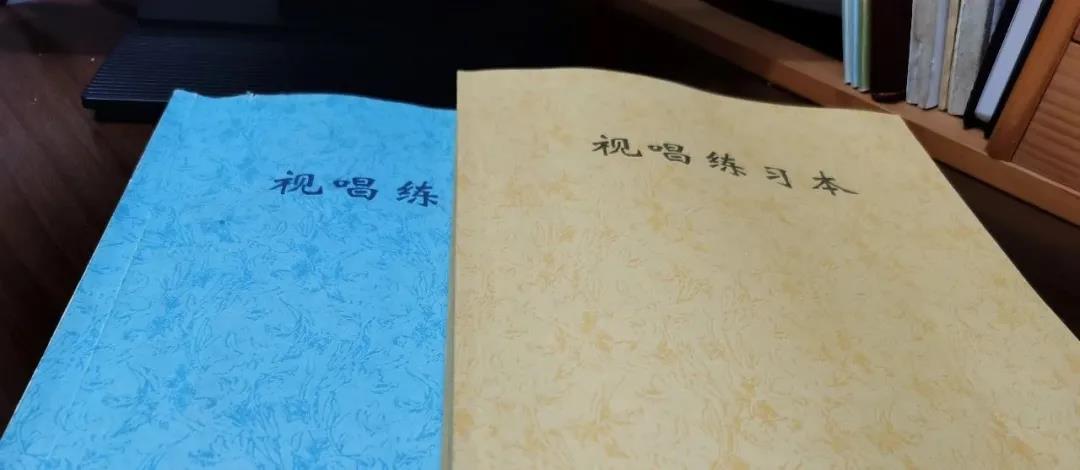 视唱练
视唱练习本